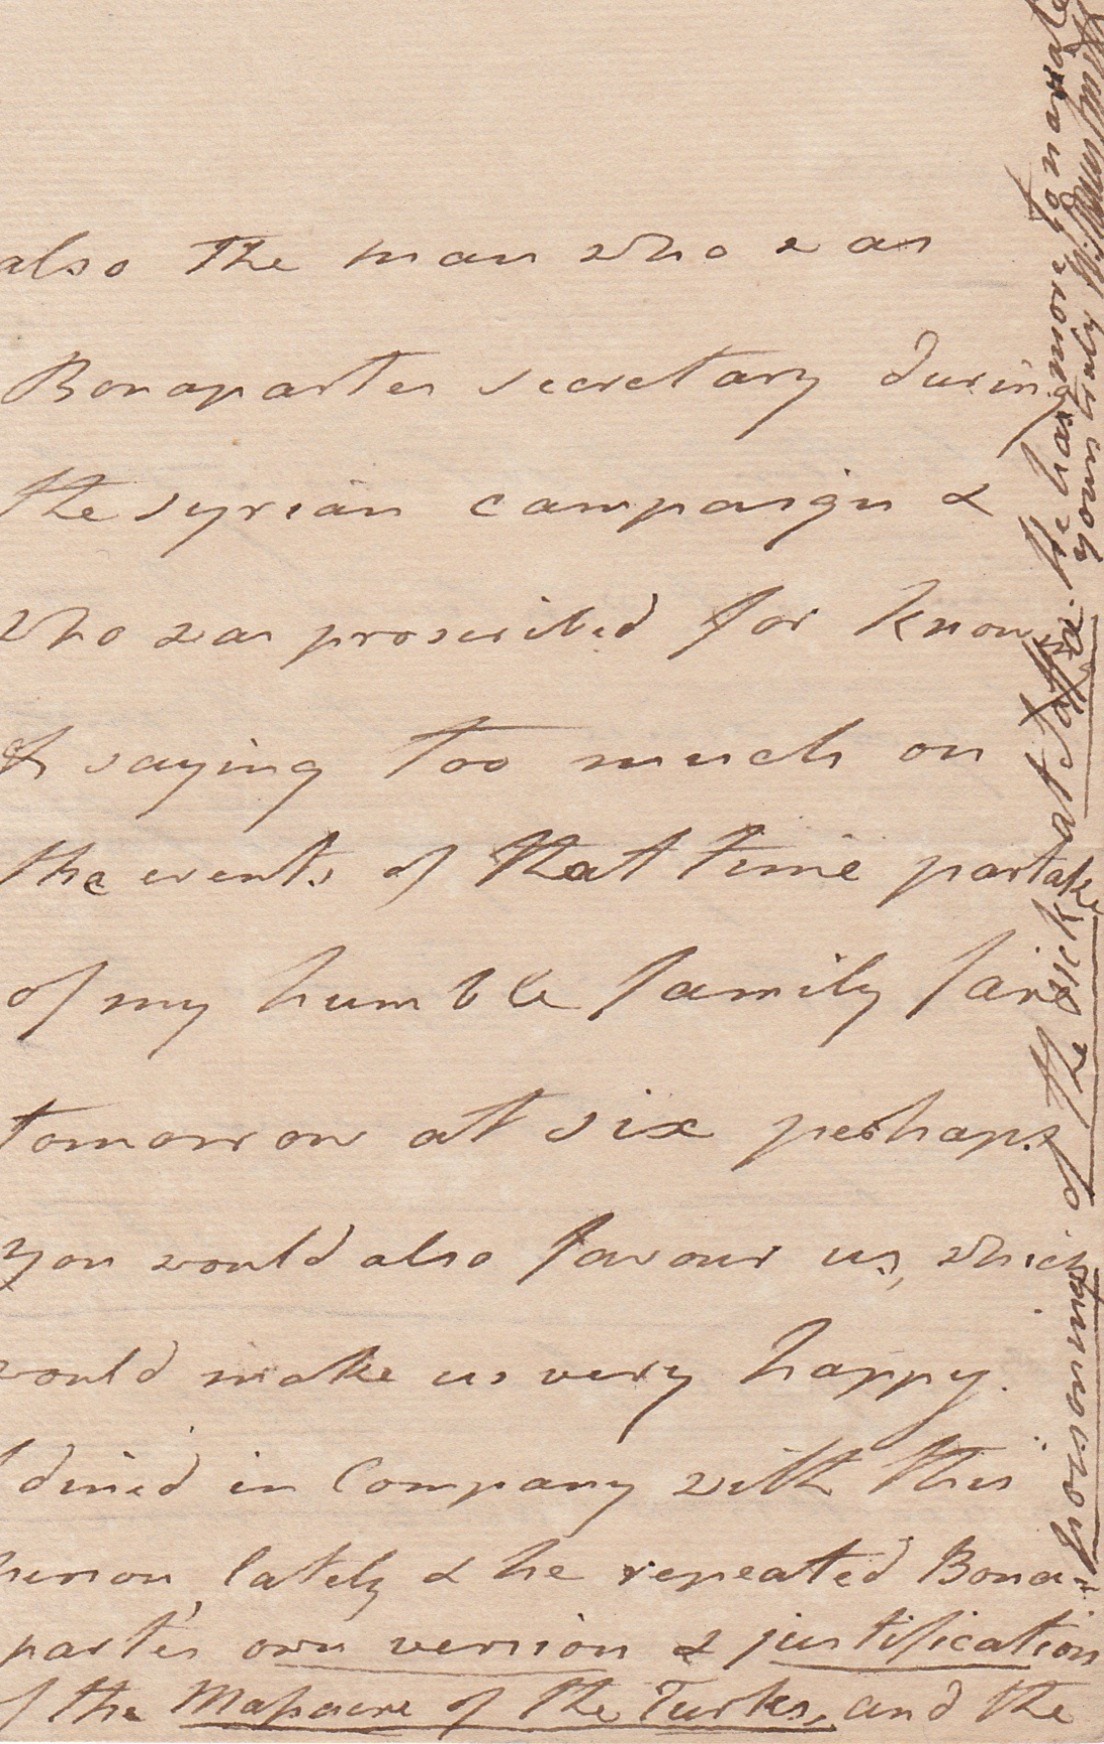 also the man who was
Bonapartes secretary during
the syrian campaign &
who was proscribed for know
& saying too much on
the events of that time partake
of my humble family fare
tomorrow at six perhaps
you would also favour us, which
would make us very happy.
I dined in Company with this
person, lately & he repeated Bona-
parte's own version & justification
of the Massacre of the Turks, and the
poisoning of the sick at Jaffa. He has more to narrate
yours truly